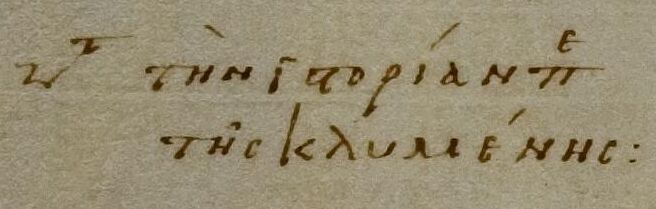 τὴν ϊστορίαν π̅ε
τῆς κλυμένης: